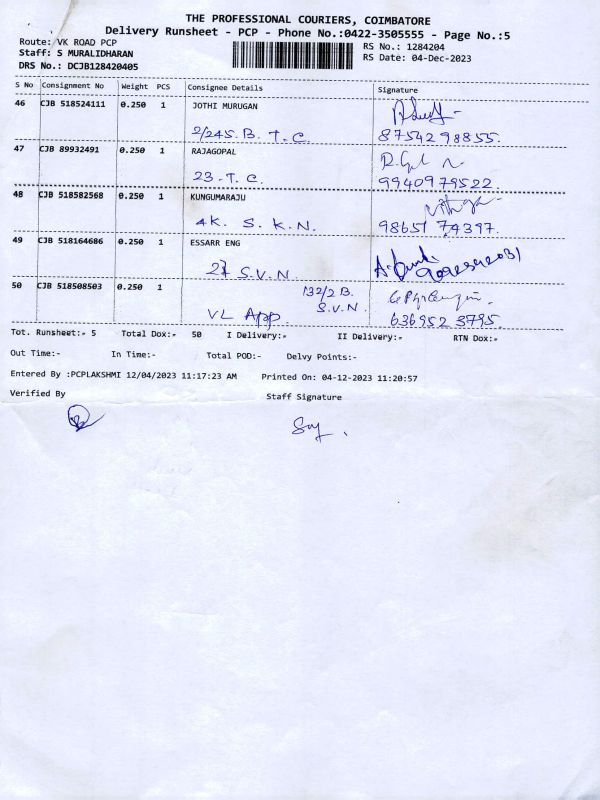 THE PROFESSIONAL COURIERS, COIMBATORE
Delivery Runsheet - PCP - Phone No.:0422-3505555 - Page No.:5
Route: VK ROAD PCP
RS No.: 1284204
Staff: S MURALIDHARAN
RS Date: 04-Dec-2023
DRS No.: DCJB128420405
S No Consignment No Weight PCS Consignee Details Signature
46 CJB 518524111 0.250 1 JOTHI MURUGAN
2/245. B. T. C. 8754298855.
47 CJB 89932491 0.250 1 RAJAGOPAL
23. T. C. 9940979522.
48 CJB 518582568 0.250 1 KUNGUMARAJU
4K. S. K. N. 98651 74397.
49 CJB 518164686 0.250 1 ESSARR ENG
S.V.N.
50 CJB 518508503 0.250 1 132/2 B.
S.V.N.
VL App 636952 3795.
Tot. Runsheet:- 5 Total Dox:- 50 I Delivery:- II Delivery:- RTN Dox:-
Out Time:- In Time:- Total POD:- Delvy Points:-
Entered By :PCPLAKSHMI 12/04/2023 11:17:23 AM Printed On: 04-12-2023 11:20:57
Verified By Staff Signature